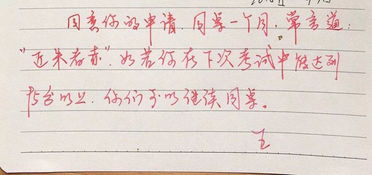 同意你的申请，同桌一个月，常言道：
“近朱者赤”，如若你在下次考试中能达到
75名以上，你们可以继续同桌。
王